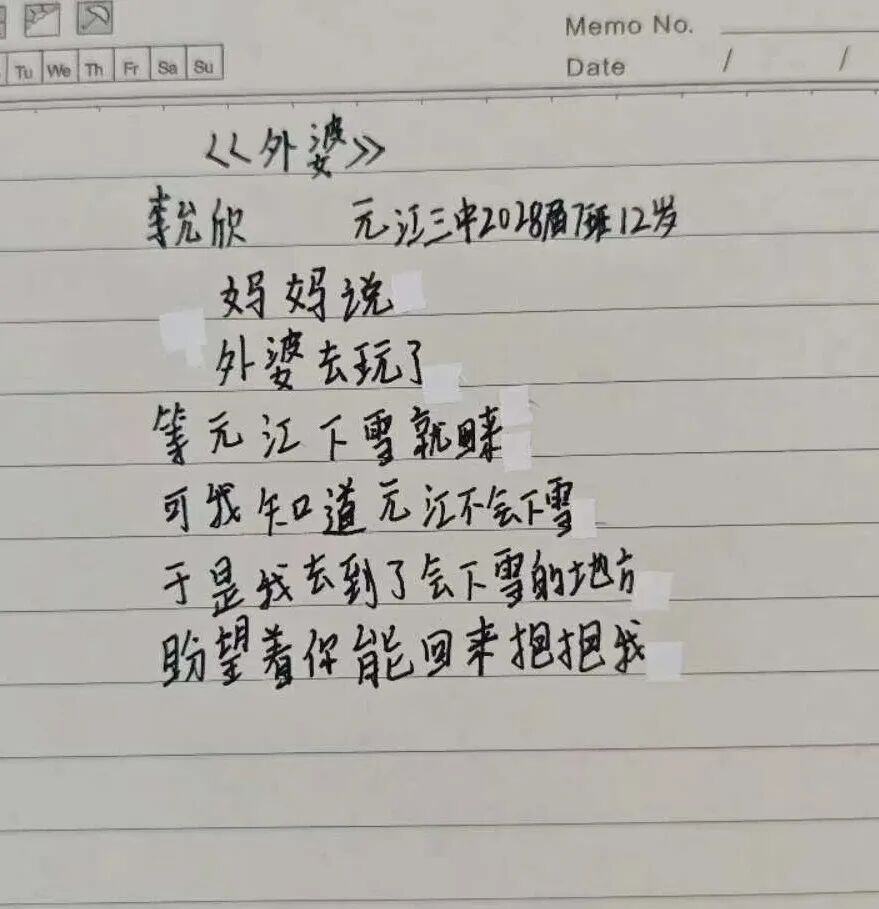 Memo No.
Tu We Th Fr Sa Su
Date / /
《外婆》
李允欣 元江三中2028届7班12岁
妈妈说
外婆去玩了
等元江下雪就
可我知道元江不会下雪
于是我去到了会下雪的地方
盼望着你能回来抱抱我